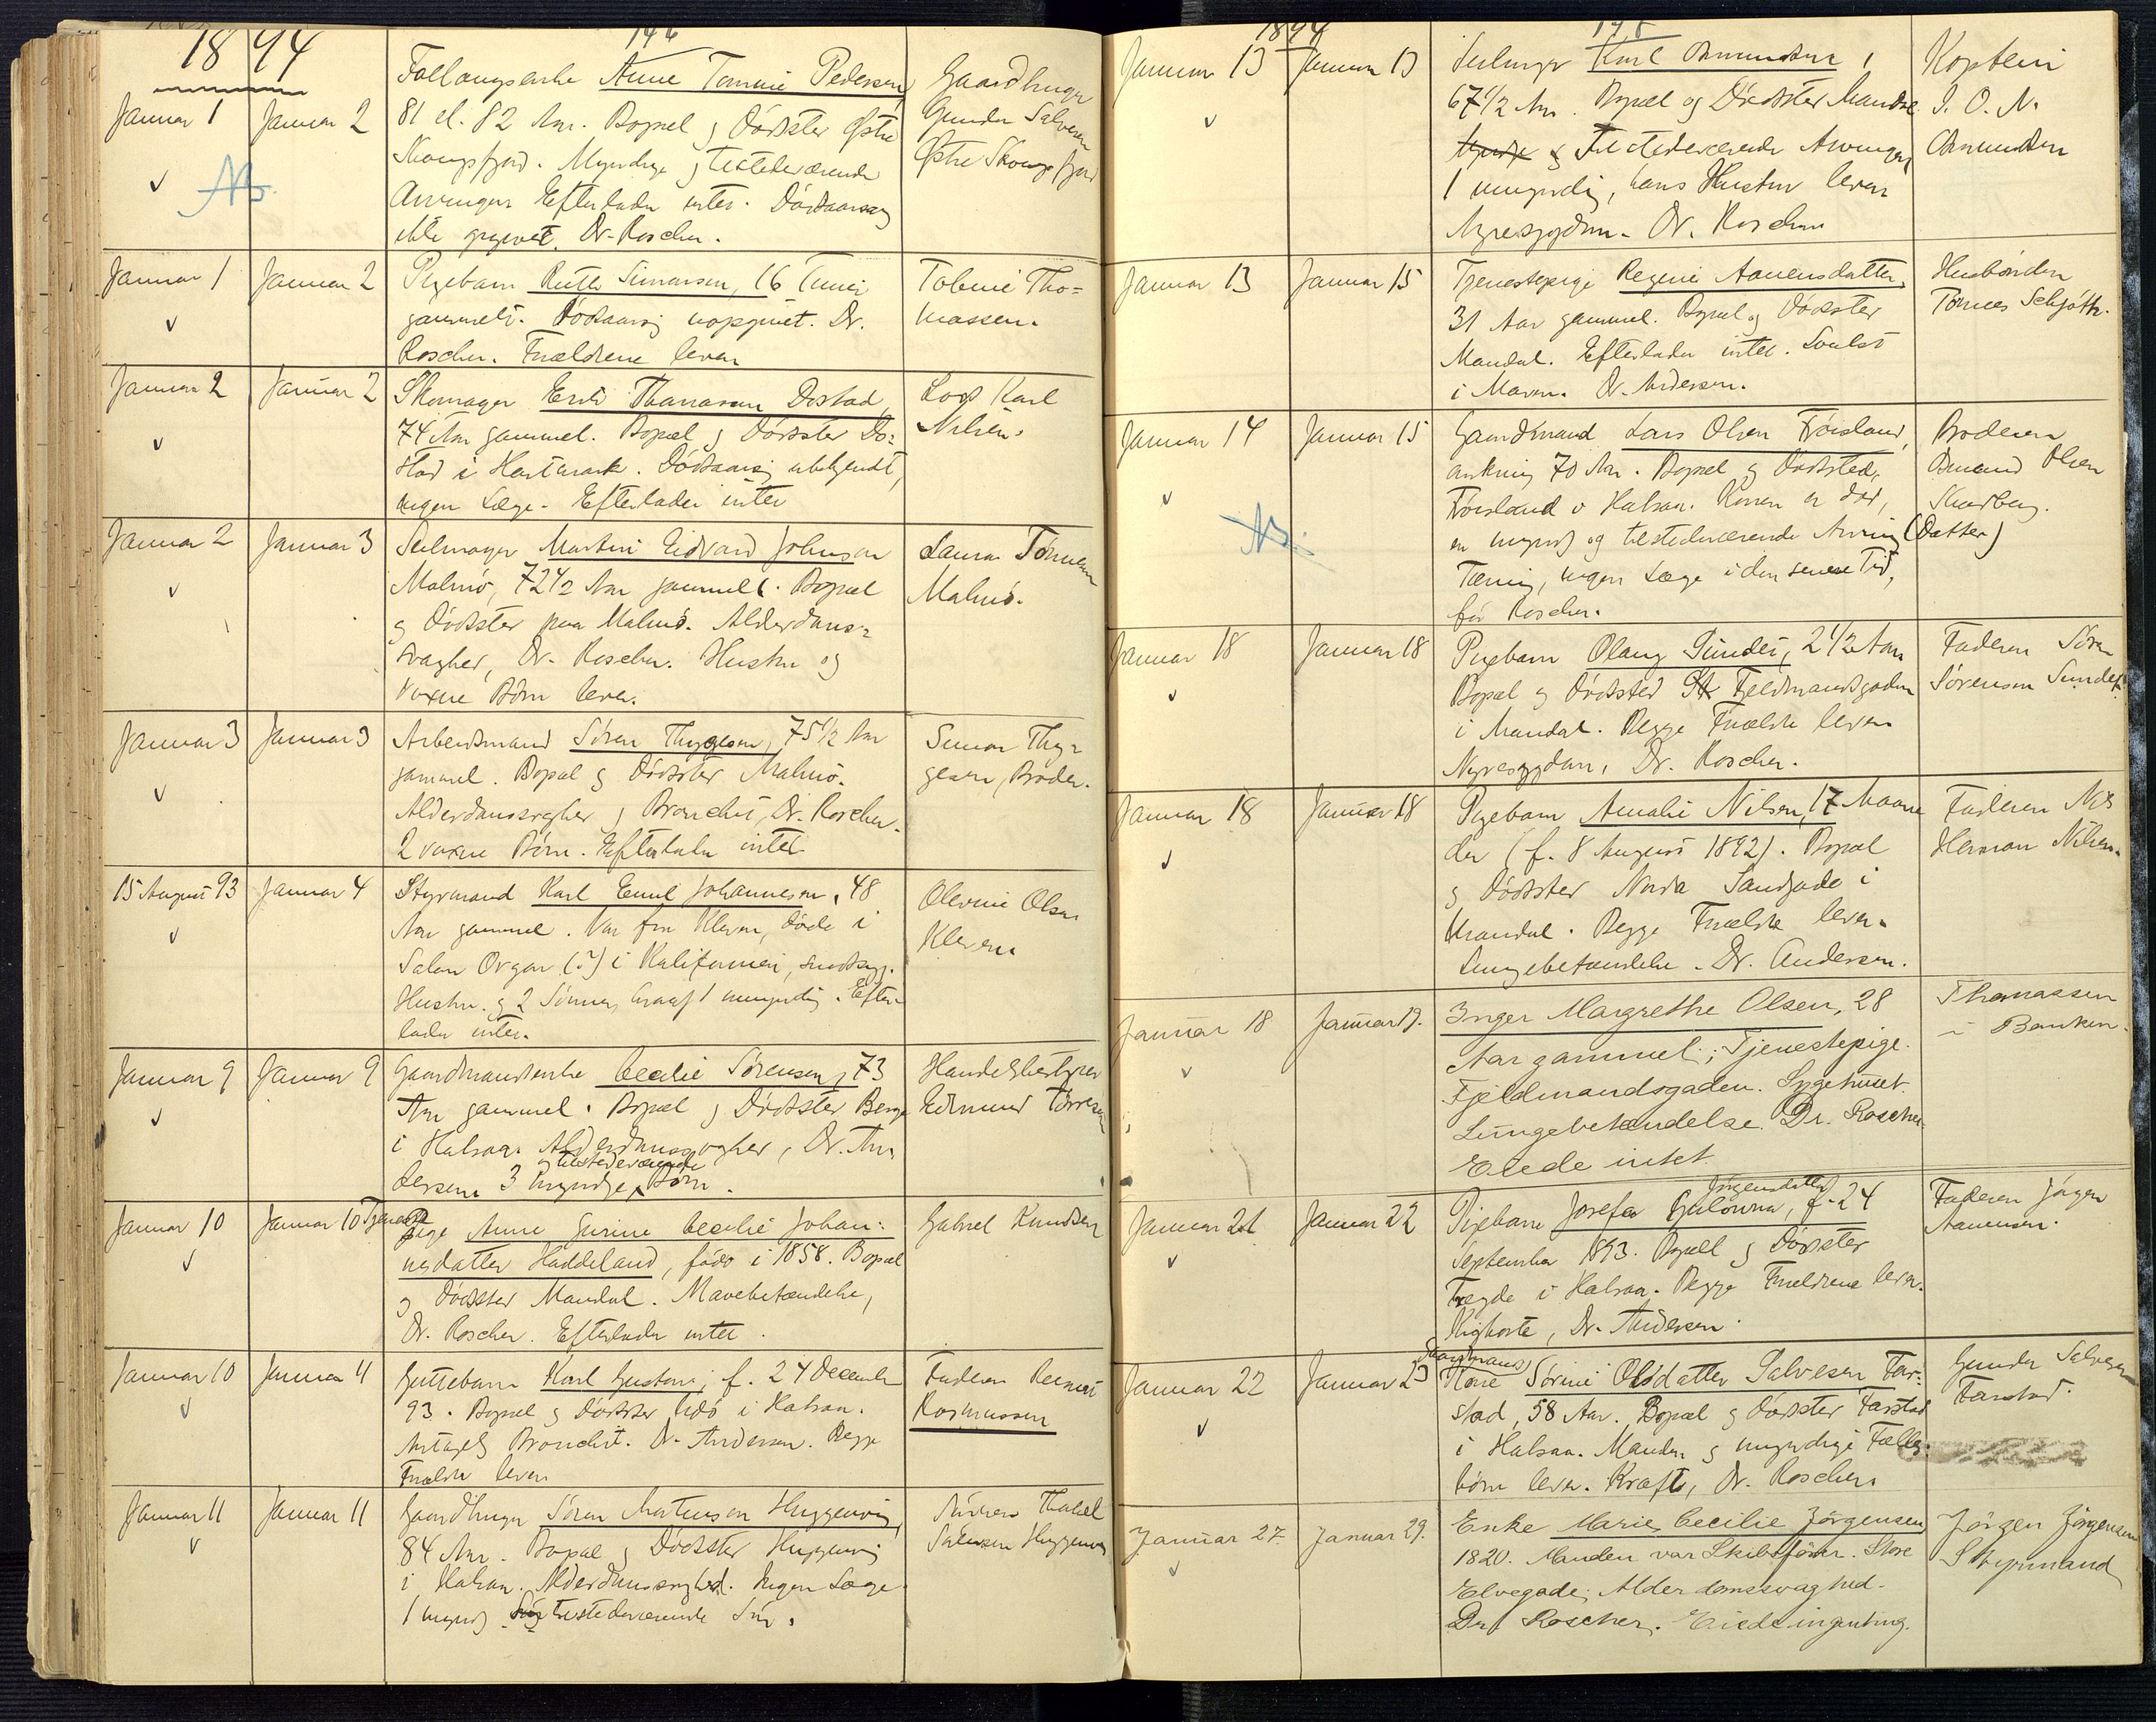 1894
146
Januar 1
Januar 2
Anne Tomine Pedersen
81 el. 82 Aar. Bopæl og Dødsster Østre
Skougsfjord. Myndige og tilstedeværende
Arvinger. Efterlader intet. Dødsaarsag
ikke opgivet. Dr. Roscher.
Gaardbruger
Gunder Salvesen
Østre Skougsfjord
NB.
Januar 1
Januar 2
Pigebarn Ruth Simonsen, 16 Timer
gammelt. Dødsaarsag uopgivet. Dr.
Roscher. Forældrene lever
Tobine Tho=
massen.
Januar 2
Januar 2
Skomager Thomassen Dostad,
74 Aar gammel. Bopæl og Dødsster Do=
stad i Hartmark. Dødsaarsag ubekjendt,
ingen Læge. Efterlader intet
Lods Karl
Nilsen.
Januar 2
Januar 3
Seilmager Martin Edvard Johnsen
Malmø, 72 1/2 Aar gammel. Bopæl
og Dødsster paa Malmø. Alderdoms=
svaghed, Dr. Roscher. Hustru og
voxne Børn lever.
Laura Tønnesen
Malmø.
Januar 3
Januar 3
Arbeidsmand Søren Thygesen, 75 1/2 Aar
gammel. Bopæl og Dødsster Malmø.
Alderdomssvaghed og Bronchit, Dr. Roscher.
2 voxne Børn. Efterlader intet.
Simon Thy=
gesen, Broder.
15 August 93
Januar 4
Styrmand Karl Emil Johannesen, 48
Aar gammel. Var fra Kleven, døde i
Salen Orgon (?) i Kalifornien,
Hustru og 2 Sønner, hvoraf 1 umyndig. Efter=
lader intet.
Olevine Olsen
Kleven
Januar 9
Januar 9
Gaardmandsenke Cecilie Sørensen, 73
Aar gammel. Bopæl og Dødsster Berge
i Halsaa. Alderdomssvaghed, Dr. An=
dersen. 3 myndige og tilstedeværende Børn.
Handelsbestyrer
Edmund Tørresen
Januar 10
Januar 10
Tjeneste
Pige Anne Gurine Cecilie Johan=
nesdatter Haddeland, født i 1858. Bopæl
og Dødsster Mandal. Mavebetændelse,
Dr. Roscher. Efterlader intet.
Gabriel Knudsen
Januar 10
Januar 11
Guttebarn Karl Gustav, f. 24 December
93. Bopæl og Dødsster Udø i Halsaa.
Antagelig Bronchit. Dr. Andersen. Begge
Forældre lever
Faderen
Rasmussen
Januar 11
Januar 11
Gaardbruger Søren Mortensen Huggenvig,
84 Aar. Bopæl og Dødsster Huggenvig
i Halsaa. Alderdomssvaghed. Ingen Læge.
1 myndig tilstedeværende Søn.
Salvesen Huggenvig
1894
Januar 13
Januar 13
Seilmager Karl Amundsen,
67 1/2 Aar. Bopæl og Dødsster Mandal.
Tilstedeværende Arvinger,
1 umyndig, hans Hustru lever
Nyresygdom. Dr. Roscher
Kaptein
J. O. N.
Amundsen
Januar 13
Januar 15
Tjenestepige Regine Aanensdatter,
31 Aar gammel. Bopæl og Dødsster
Mandal. Efterlader intet. Svulst
i Maven. Dr. Andersen.
Husbonden
Tønnes Schjøth.
Januar 14
Januar 15
Gaardmand Lars Olsen Frøisland,
omkring 70 Aar. Bopæl og Dødssted,
Frøisland i Halsaa. Konen er død,
en myndig og tilstedeværende Arving (Datter)
Tæring, ingen Læge i den senere Tid,
før Roscher.
Broderen
Amund Olsen
Skarberg.
NB.
Januar 18
Januar 18
Pigebarn Olaug Sundet, 2 1/2 Aar
Bopæl og Dødssted Fjeldmandsgaden
i Mandal. Begge Forældre lever.
Nyresygdom, Dr. Roscher.
Faderen Søren
Sørensen Sundet.
Januar 18
Januar 18
Pigebarn Amalie Nilsen, 17 Maane
der (f. 8 August 1892). Bopæl
og Dødsster Nordre Sandgade i
Mandal. Begge Forældre lever.
Lungebetændelse. Dr. Andersen.
Faderen Nils
Herman Nilsen.
Januar 18
Januar 19.
Inger Margrethe Olsen, 28
Aar gammel; Tjenestepige.
Fjeldmandsgaden. Sygehuset.
Lungebetændelse. Dr. Roscher
Eiede intet.
Thomassen
i Banken.
Januar 21
Januar 22
Jørgensdatter
Pigebarn Josefa, f. 24
September 1893. Bopæl og Dødsster
Tregde i Halsaa. Begge Forældrene lever.
Kighoste, Dr. Andersen.
Faderen Jørgen
Aanensen.
Januar 22
Januar 23
Gaardmands
Kone Sørine Olsdatter Salvesen Far=
stad, 58 Aar. Bopæl og Dødsster Farstad
i Halsaa. Manden og myndige Fælles
børn lever. Kræft, Dr. Roscher
Gunder Salvesen
Farstad.
Januar 27.
Januar 29.
Enke Marie Cecilie Jørgensen,
1820. Manden var Skibsfører. Store
Elvegade. Alderdomssvaghed.
Dr. Roscher. Eiede ingenting.
Jørgen Jørgensen
Styrmand